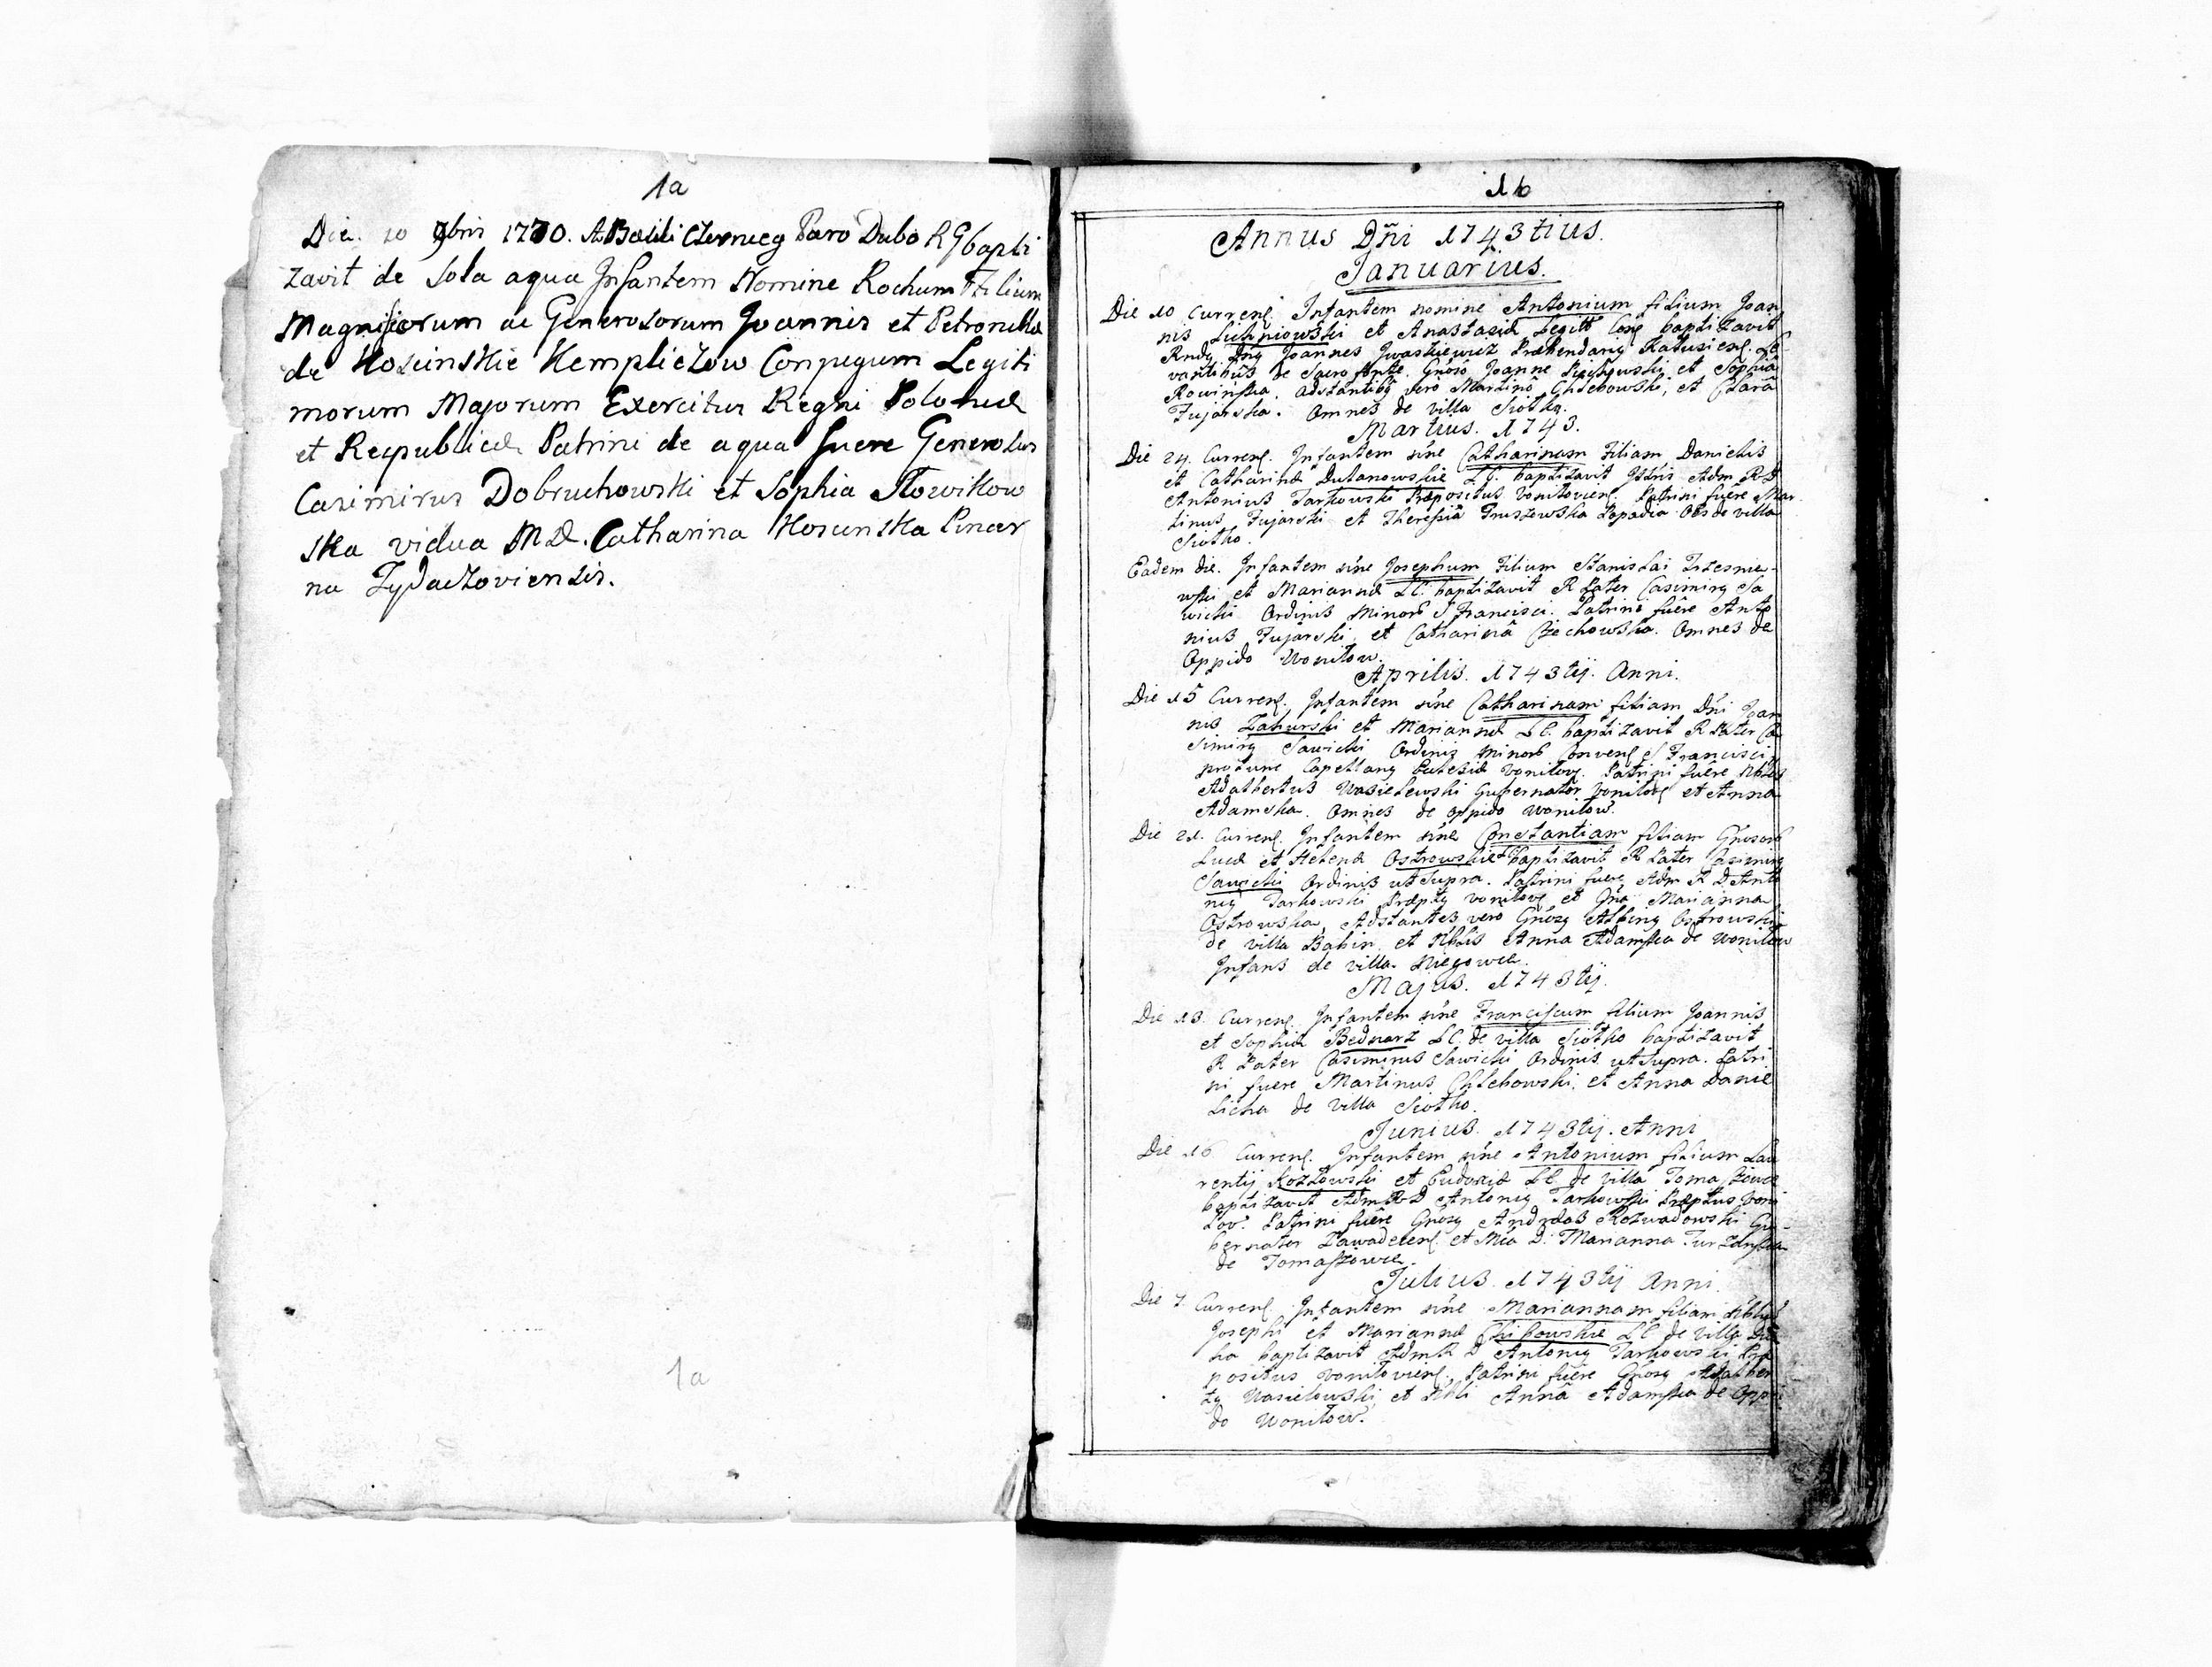 1a
Die. 10 9bris 1770. A Basili Czernieg Paro Dubo RG bapti
zavit de sola aqua Infantem Nomine Rochum Filium
Magnificorum ac Generosorum Joannis et Petronella
de Kosinskie Kempliczow Conjugum Legiti
morum Majorum Exercitus Regni Poloniæ
et Reipublicæ Patrini de aqua fuere Generosus
Casimirus Dobruchowski et Sophia Słowikow
ska vidua MD. Catharina Kosinska Pincer
na Zydaczoviensis.
1a
1b
Annus Dñi 1743tius.
Januarius.
Die 10 Curren. Infantem nomine Antonium filium Joan
nis et Anastasiæ Legitt Conj baptizavit
Rndg Dng Joannes Iwaszkiewicz Præbendarig Katusien. Le
vantibus de Sacro fonte. Gnoso Joanne et Sophia
Rowinska, adstantibg vero Martino Chlebowski, et Clara
Fujarska. Omnes de villa Siotko.
Martius. 1743.
Die 24. Curren. Infantem nîne Catharinam Filiam Danielis
et Catharinæ Dulanowskie LC. baptizavit Adm R D
Antonius Tarkowski Præpositus Vonitovien. Patrini fuêre Mar
tinus Fujarski et Theressia Gruszewska Popadia Oēs de villa
Siotko.
Eadem die. Infantem nîne Josephum Filium Stanislai Trzesnie
wski et Mariannæ LC. baptizavit R Pater Casimirg Sa
wicki Ordinis Minorũ S Francisci. Patrini fuêre Anto
nius Fujarski, et Catharina Czechowska. Omnes de
Oppido Wonitow.
Aprilis. 1743tij. Anni.
Die 15 Curren. Infantem nîne Catharinam filiam Dñi Joan
nis Zakurski et Mariannæ LC. baptizavit R Pater Ca
simirg Sawicki Ordinis Minorũ Conven S Francisci,
protunc Capellang Ecclesiæ Vonitov. Patrini fuêre Nblis
Adalbertus Wasielewski Gubernator Vonitov et Anna
Adamska. Omnes de oppido Wonitow.
Die 21. Curren. Infantem nîne Constantiam filiam Gnosorũ
Lucæ et Helenæ Ostrowskie LC baptizavit R Pater Casimirg
Sawicki Ordinis ut Supra. Patrini fuere Adm R D Anto
nig Tarkowski Præptg Vonitov et Gña Marianna
Ostrowska, Adstantes vero Gnosg Albing Ostrowski
de villa Babin, et Nblis Anna Adamska de Wonitow
Infans de villa Niegowce.
Majus. 1743tij.
Die 13. Curren. Infantem nîne Franciscum filium Joannis
et Sophiæ Bednarz LC. de villa Siotko baptizavit
R Pater Casimirus Sawicki Ordinis ut Supra. Patri
ni fuere Martinus Chlebowski, et Anna Danie
licka de villa Siotko.
Junius. 1743tij. Anni
Die 16 Curren. Infantem nîne Antonium filium Lau
rentij Kozłowski et Eudoxiæ LC de villa Tomaszowce
baptizavit Adm R D Antonig Tarkowski Præptus Voni
tov. Patrini fuêre Gnosg Andreas Rozwadowski Gu
bernator Zawadecen. et Mca D. Marianna Turzanska
de Tomaszowce.
Julius. 1743tij Anni.
Die 7. Curren. Infantem nîne Mariannam filiam Nbliũ
Josephi et Mariannæ Chibowskie LC de villa
ka baptizavit Adm R D Antonig Tarkowski Præ
positus Vonitovien. Patrini fuêre Gnosg Adalber
tg Wasielewski, et Nbli Anna Adamska de Oppi
do Wonitow.